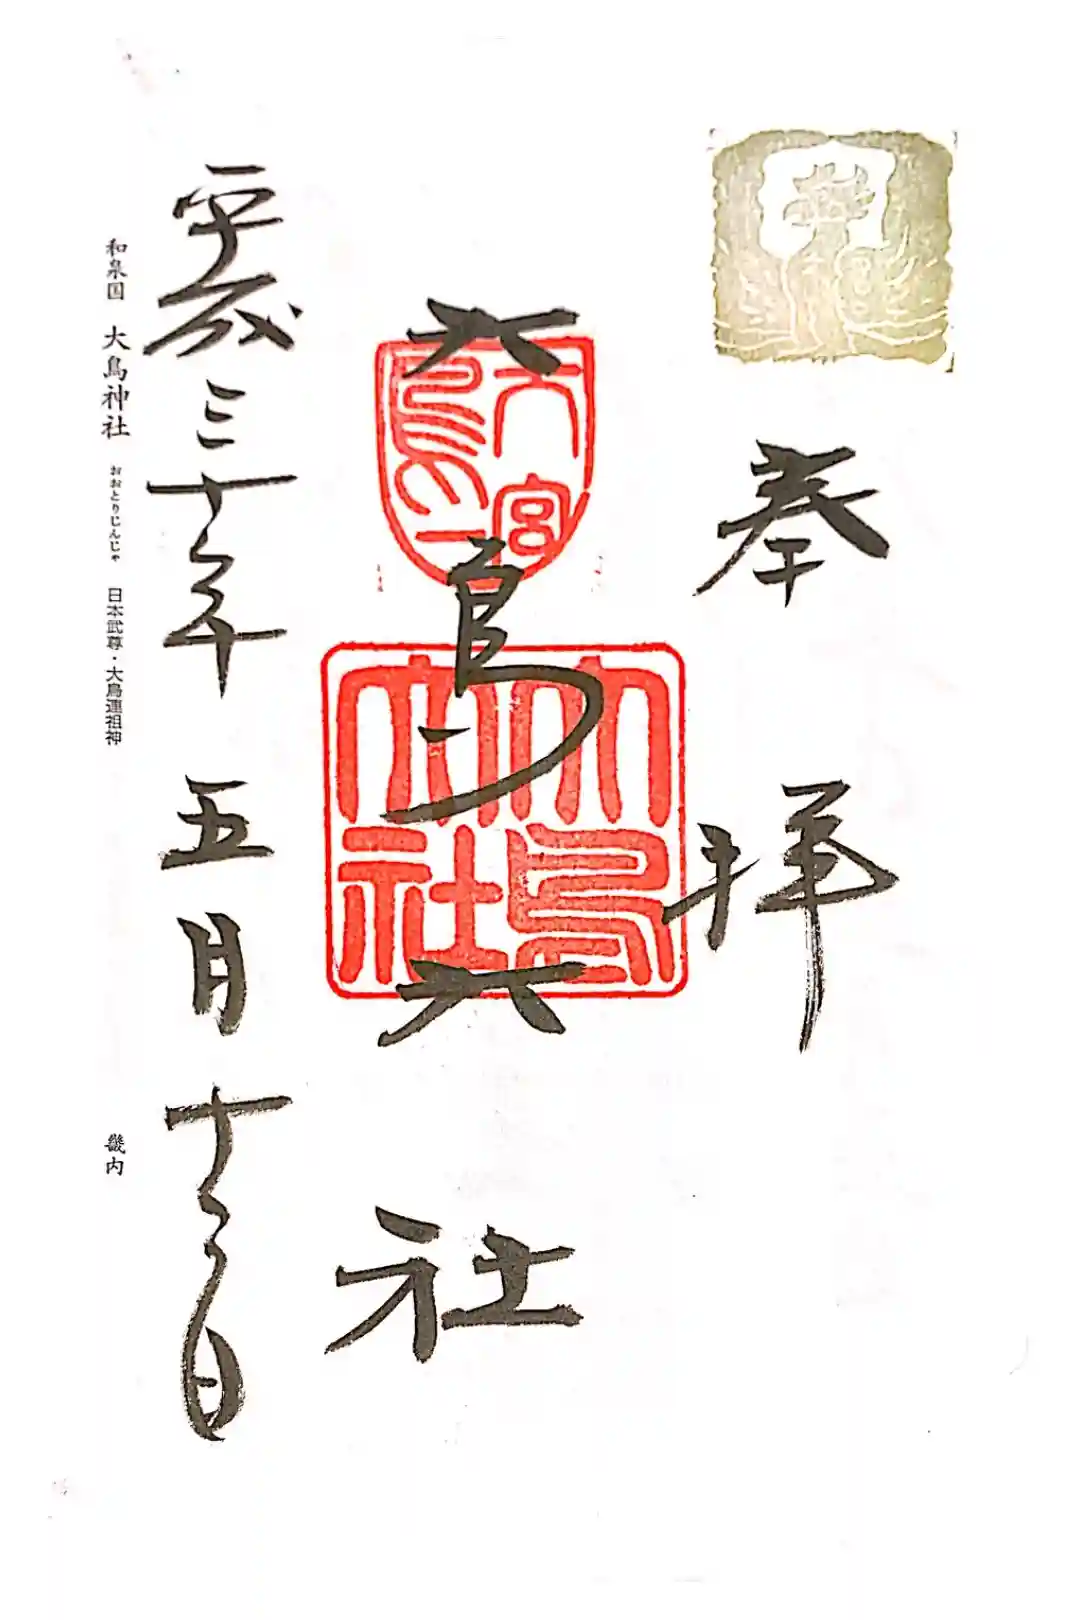 奉拝
大鳥大社
大鳥一宮
大鳥大社
平成三十年五月十日
和泉国 大鳥神社 おおとりじんじゃ 日本武尊・大鳥連祖神 畿内